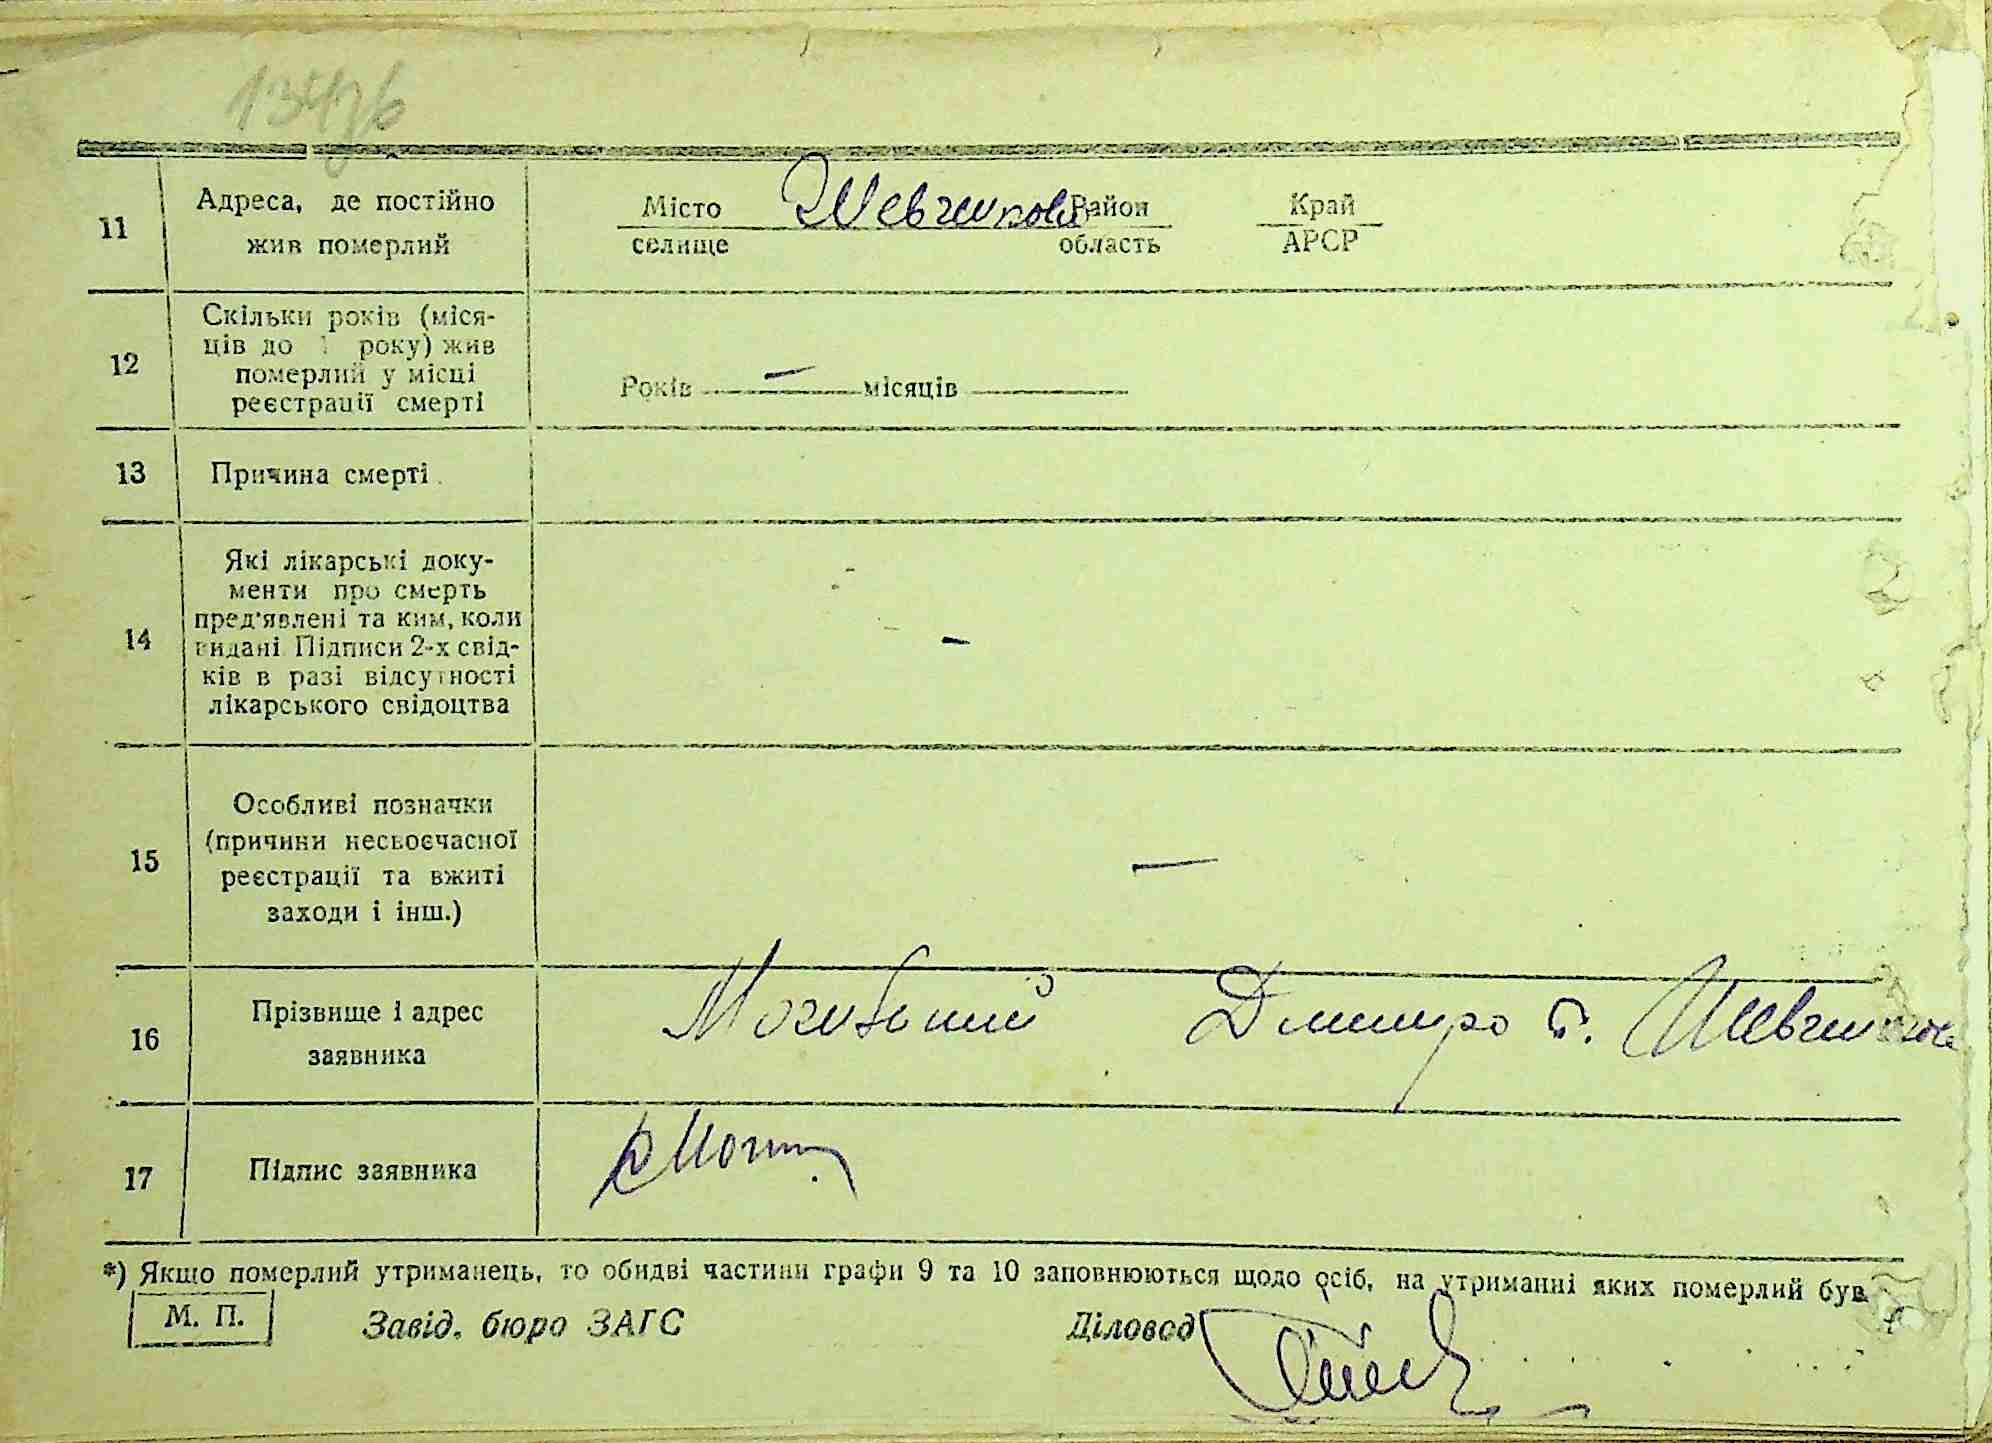 11 Адреса, де постійно
жив померлий
Місто Шевченкове Район Край
селище область АРСР
12 Скільки років (міся-
ців до 1 року) жив
померлий у місці
реєстрації смерті
Років — місяців
13 Причина смерті
14 Які лікарські доку-
менти про смерть
пред'явлені та ким, коли
видані Підписи 2-х свід-
ків в разі відсутності
лікарського свідоцтва
—
15 Особливі позначки
(причини несвоєчасної
реєстрації та вжиті
заходи і інш.)
—
16 Прізвище і адрес
заявника
Дмитро с. Шевченкове
17 Підпис заявника
*) Якщо померлий утриманець, то обидві частини графи 9 та 10 заповнюються щодо осіб, на утриманні яких померлий був
М. П. Завід. бюро ЗАГС Діловод